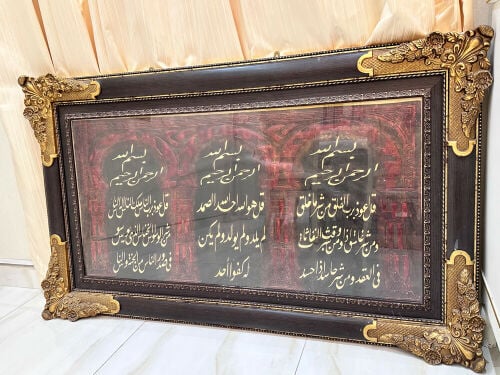 بسم الله
الرحمن الرحیم
قل اعوذ برب الفلق من شر ما خلق
و من شر غاسق اذا وقب و من شر النفاثات
فی العقد و من شر حاسد اذا حسد
بسم الله
الرحمن الرحیم
قل هو الله احد الله الصمد
لم یلد و لم یولد و لم یکن
له کفوا احد
بسم الله
الرحمن الرحیم
قل اعوذ برب الناس ملک الناس اله الناس
من شر الوسواس الخناس الذی یوسوس
فی صدور الناس من الجنة و الناس